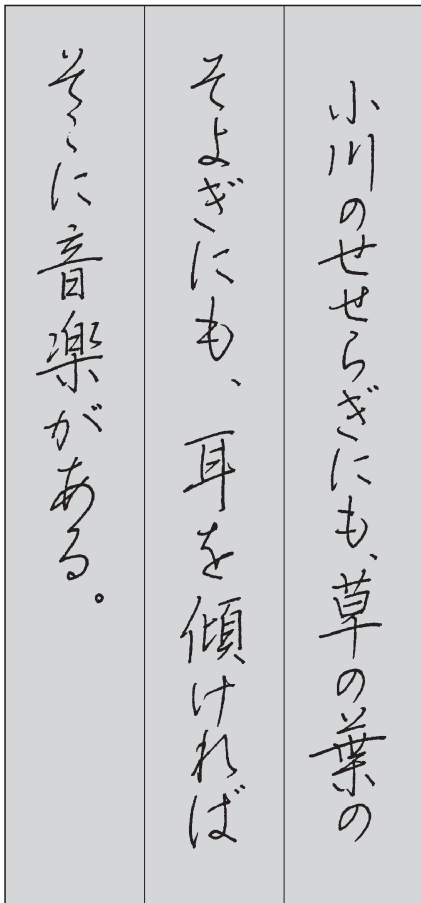 小川のせせらぎにも、草の葉の
そよぎにも、耳を傾ければ
そこに音楽がある。